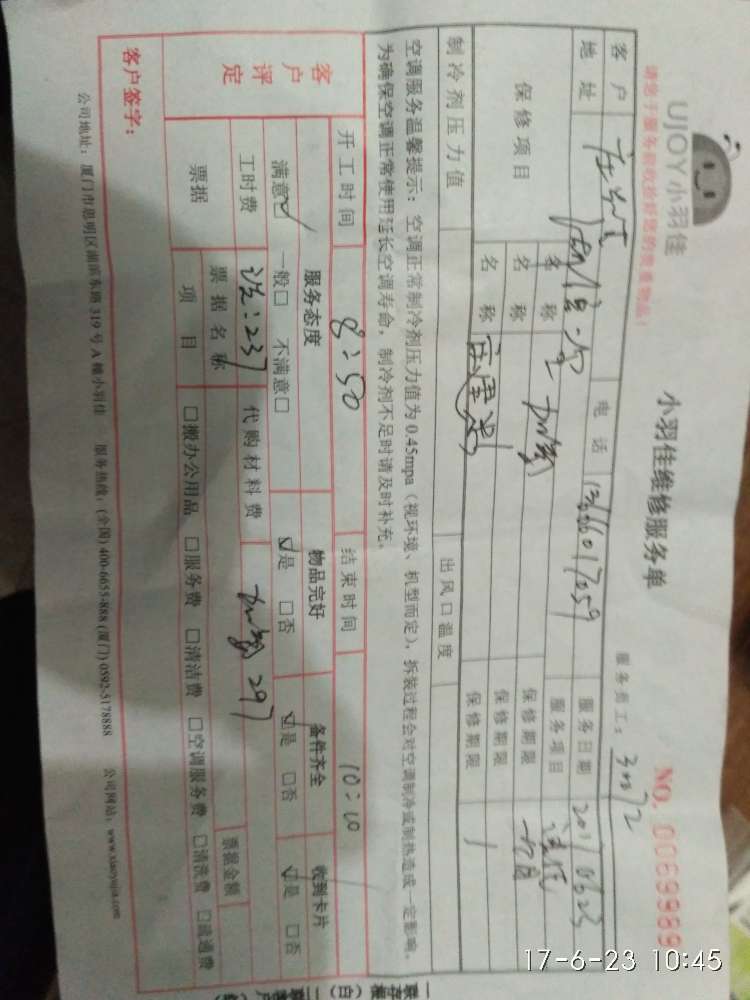 UJOY小羽佳
小羽佳维修服务单
NO. 0069989
请您于服务前收拾好您的贵重物品!
服务员工:
客户
电话
服务日期
地址
服务项目
保修项目
名称
保修期限
名称
保修期限
名称
保修期限
制冷剂压力值
出风口温度
空调服务温馨提示:空调正常制冷剂压力值为0.45mpa(视环境、机型而定),拆装过程会对空调制冷或制热造成一定影响。
为确保空调正常使用延长空调寿命,制冷剂不足时请及时补充。
开工时间 8:50 结束时间 10:10
客户评定
服务态度 物品完好 备件齐全 收到卡片
满意☑ 一般□ 不满意□ ☑是 □否 ☑是 □否 ☑是 □否
工时费 :237 代购材料费 297
票据 票据名称 票据金额
项目 □搬办公用品 □服务费 □清洁费 □空调服务费 □清洗费 □疏通费
客户签字:
公司地址:厦门市思明区湖滨东路319号A幢小羽佳 服务热线:(全国)400-6655-888 (厦门)0592-5178888 公司网站:www.xiaoyujia.com
17-6-23 10:45